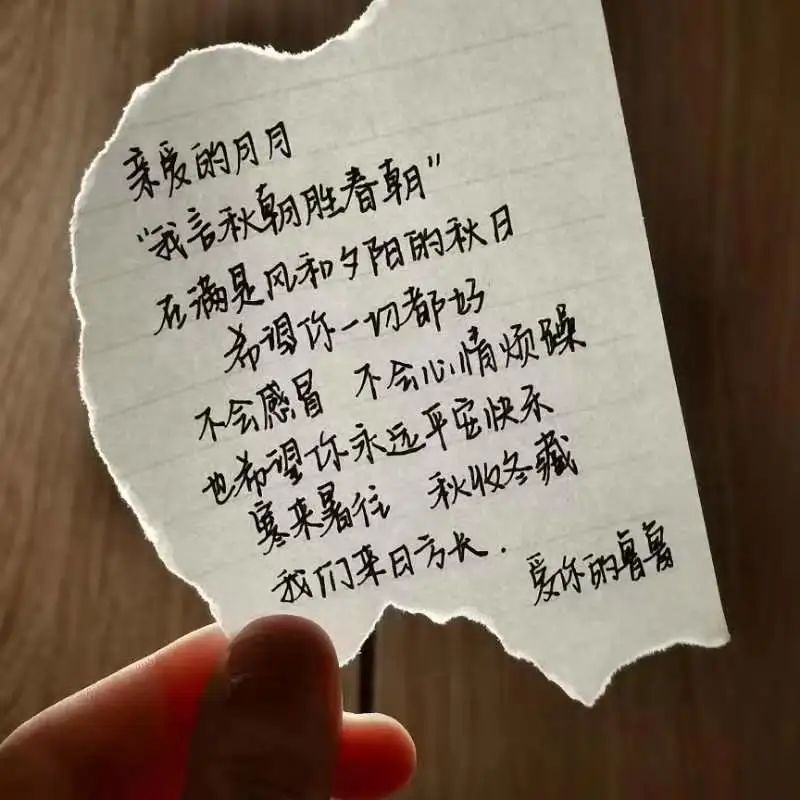 亲爱的月月
“我言秋朝胜春朝”
在满是风和夕阳的秋日
希望你一切都好
不会感冒 不会心情烦躁
也希望你永远平安快乐
寒来暑往 秋收冬藏
我们来日方长.
爱你的鲁鲁